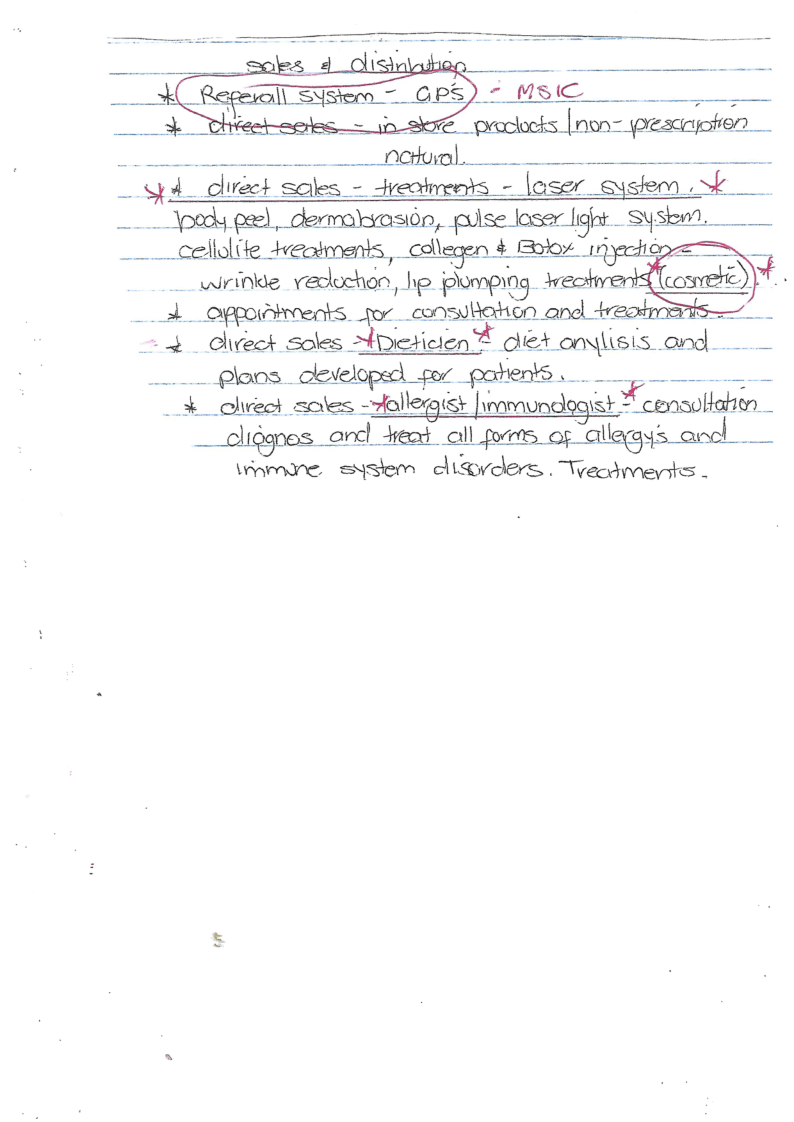 sales & distribution
* Referall system - GP's - MSIC
* direct sales - in store products / non-prescription
natural.
* * direct sales - treatments - laser system. *
body peel, dermabrasion, pulse laser light system.
cellulite treatments, collegen & Botox injection -
wrinkle reduction, lip plumping treatments * (cosmetic). *
* appointments for consultation and treatments.
- * direct sales - * Dieticien * - diet anylisis and
plans developed for patients.
* direct sales - * allergist / immunologist - * consultation
diagnos and treat all forms of allergy's and
immune system disorders. Treatments.